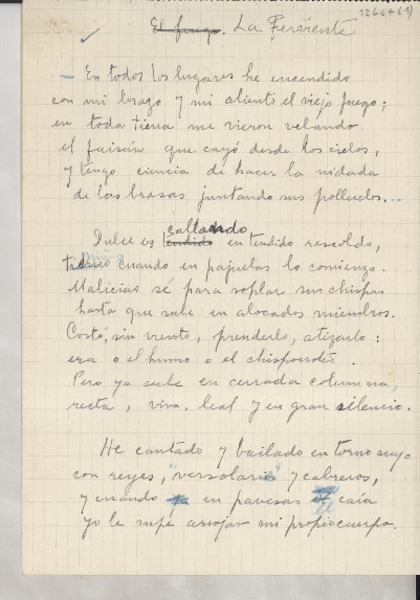 1266+(1)
El fuego. La Ferviente
En todos los lugares he encendido
con mi brazo y mi aliento el viejo fuego;
en toda tierra me vieron velando
el faisán que cayó desde los cielos,
y tengo ciencia de hacer la nidada
de las brasas juntando sus polluelos...
callando
Dulce es tendido en tendido rescoldo,
tierno cuando en pajuelas lo comienzo.
Malicias sé para soplar sus chispas
hasta que sube en alocados miembros.
Costó, sin viento, prenderlo, atizarlo:
era o el humo o el chisporroteo.
Pero ya sube en cerrada columna,
recta, viva, leal y en gran silencio.
He cantado y bailado en torno suyo
con reyes, "versolaris" y cabreros,
y cuando ya en pavesas él caía
yo le supe arrojar mi propio cuerpo.